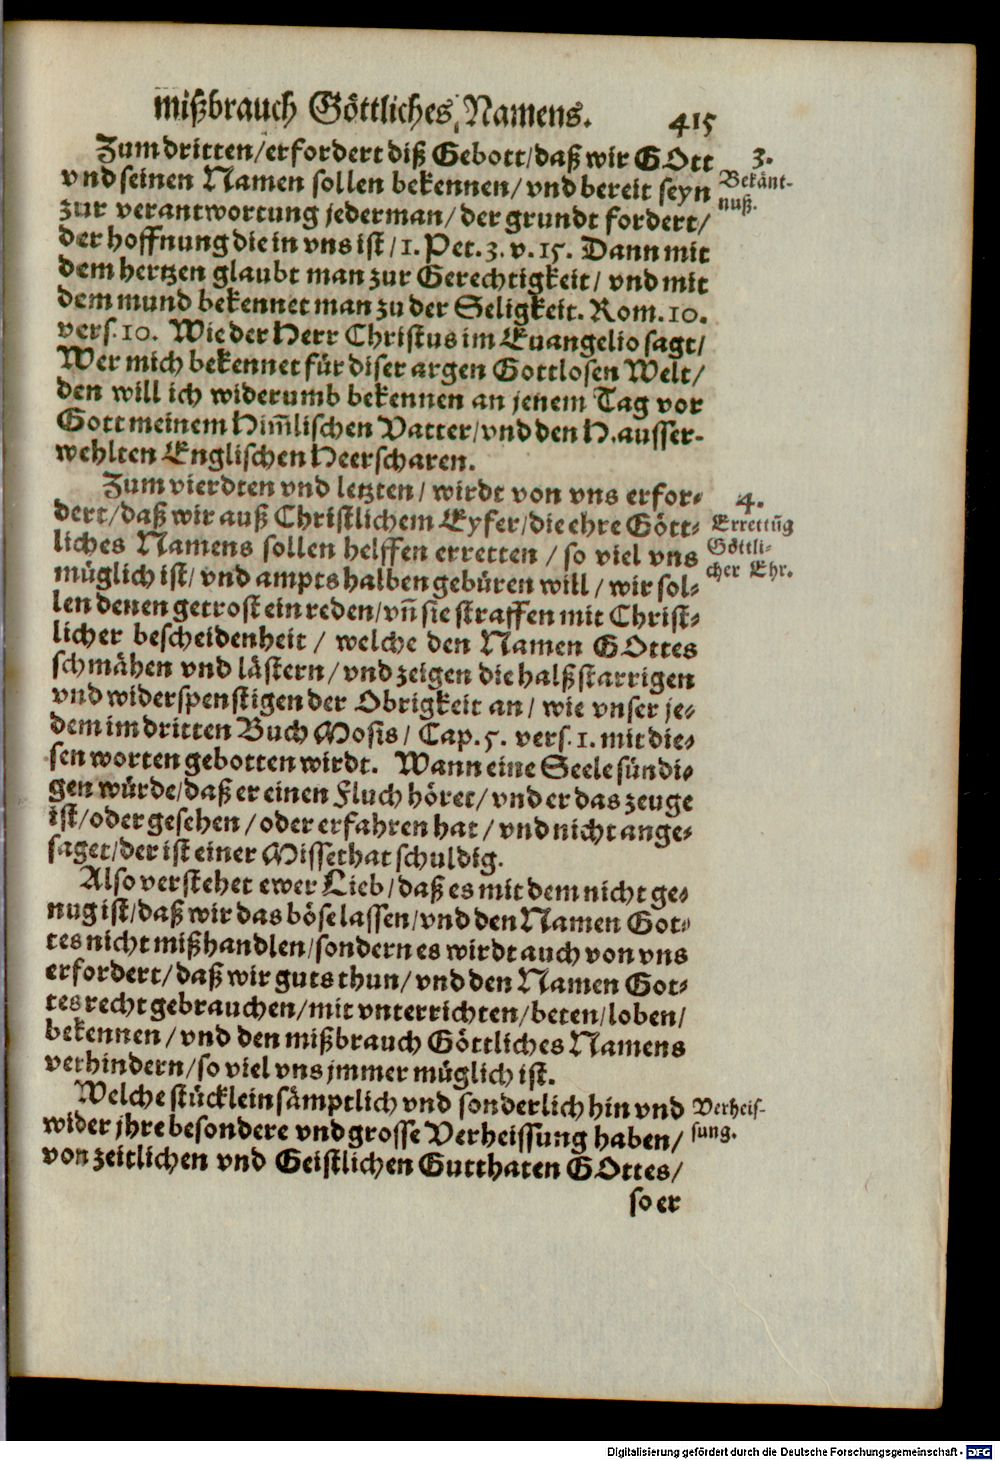 mißbrauch Göttliches Namens. 415
Zum dritten/ erfordert diß Gebott/ daß wir GOtt
vnd seinen Namen sollen bekennen/ vnd bereit seyn
zur verantwortung jederman/ der grundt fordert/
der hoffnung die in vns ist/ 1. Pet. 3. v. 15. Dann mit
dem hertzen glaubt man zur Gerechtigkeit/ vnd mit
dem mund bekennet man zu der Seligkeit. Rom. 10.
vers. 10. Wie der Herr Christus im Euangelio sagt/
Wer mich bekennet für diser argen Gottlosen Welt/
den will ich widerumb bekennen an jenem Tag vor
Gott meinem Him̃lischen Vatter/ vnd den H. ausser-
wehlten Englischen Heerscharen.
3.
Bekänt-
nuß.
Zum vierdten vnd letzten/ wirdt von vns erfor-
dert/ daß wir auß Christlichem Eyfer/ die ehre Gött-
liches Namens sollen helffen erretten/ so viel vns
müglich ist/ vnd ampts halben gebüren will/ wir sol-
len denen getrost ein reden/ vñ sie straffen mit Christ-
licher bescheidenheit/ welche den Namen GOttes
schmähen vnd lästern/ vnd zeigen die halßstarrigen
vnd widerspenstigen der Obrigkeit an/ wie vnser je-
dem im dritten Buch Mosis/ Cap. 5. vers. 1. mit die-
sen worten gebotten wirdt. Wann eine Seele sündi-
gen würde/ daß er einen Fluch höret/ vnd er das zeuge
ist/ oder gesehen/ oder erfahren hat/ vnd nicht ange-
saget/ der ist einer Missethat schuldig.
4.
Errettũg
Göttli-
cher Ehr.
Also verstehet ewer Lieb/ daß es mit dem nicht ge-
nug ist/ daß wir das böse lassen/ vnd den Namen Got-
tes nicht mißhandlen/ sondern es wirdt auch von vns
erfordert/ daß wir guts thun/ vnd den Namen Got-
tes recht gebrauchen/ mit vnterrichten/ beten/ loben/
bekennen/ vnd den mißbrauch Göttliches Namens
verhindern/ so viel vns jmmer müglich ist.
Welche stücklein sämptlich vnd sonderlich hin vnd
wider jhre besondere vnd grosse Verheissung haben/
von zeitlichen vnd Geistlichen Gutthaten GOttes/
Verheis-
sung.
so er
Digitalisierung gefördert durch die Deutsche Forschungsgemeinschaft - DFG